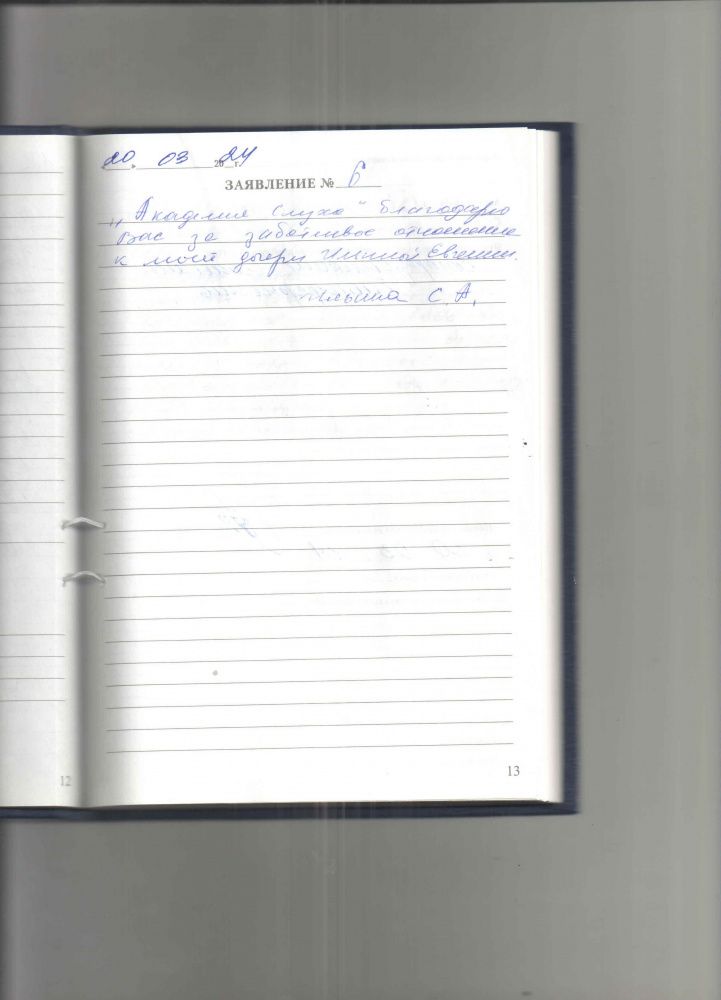 20. 03 2024 г.
ЗАЯВЛЕНИЕ № 6
„Академия Слуха" благодарю
Вас за заботливое отношение
к моей дочери Ильиной Евгении.
Ильина С. А.
12
13